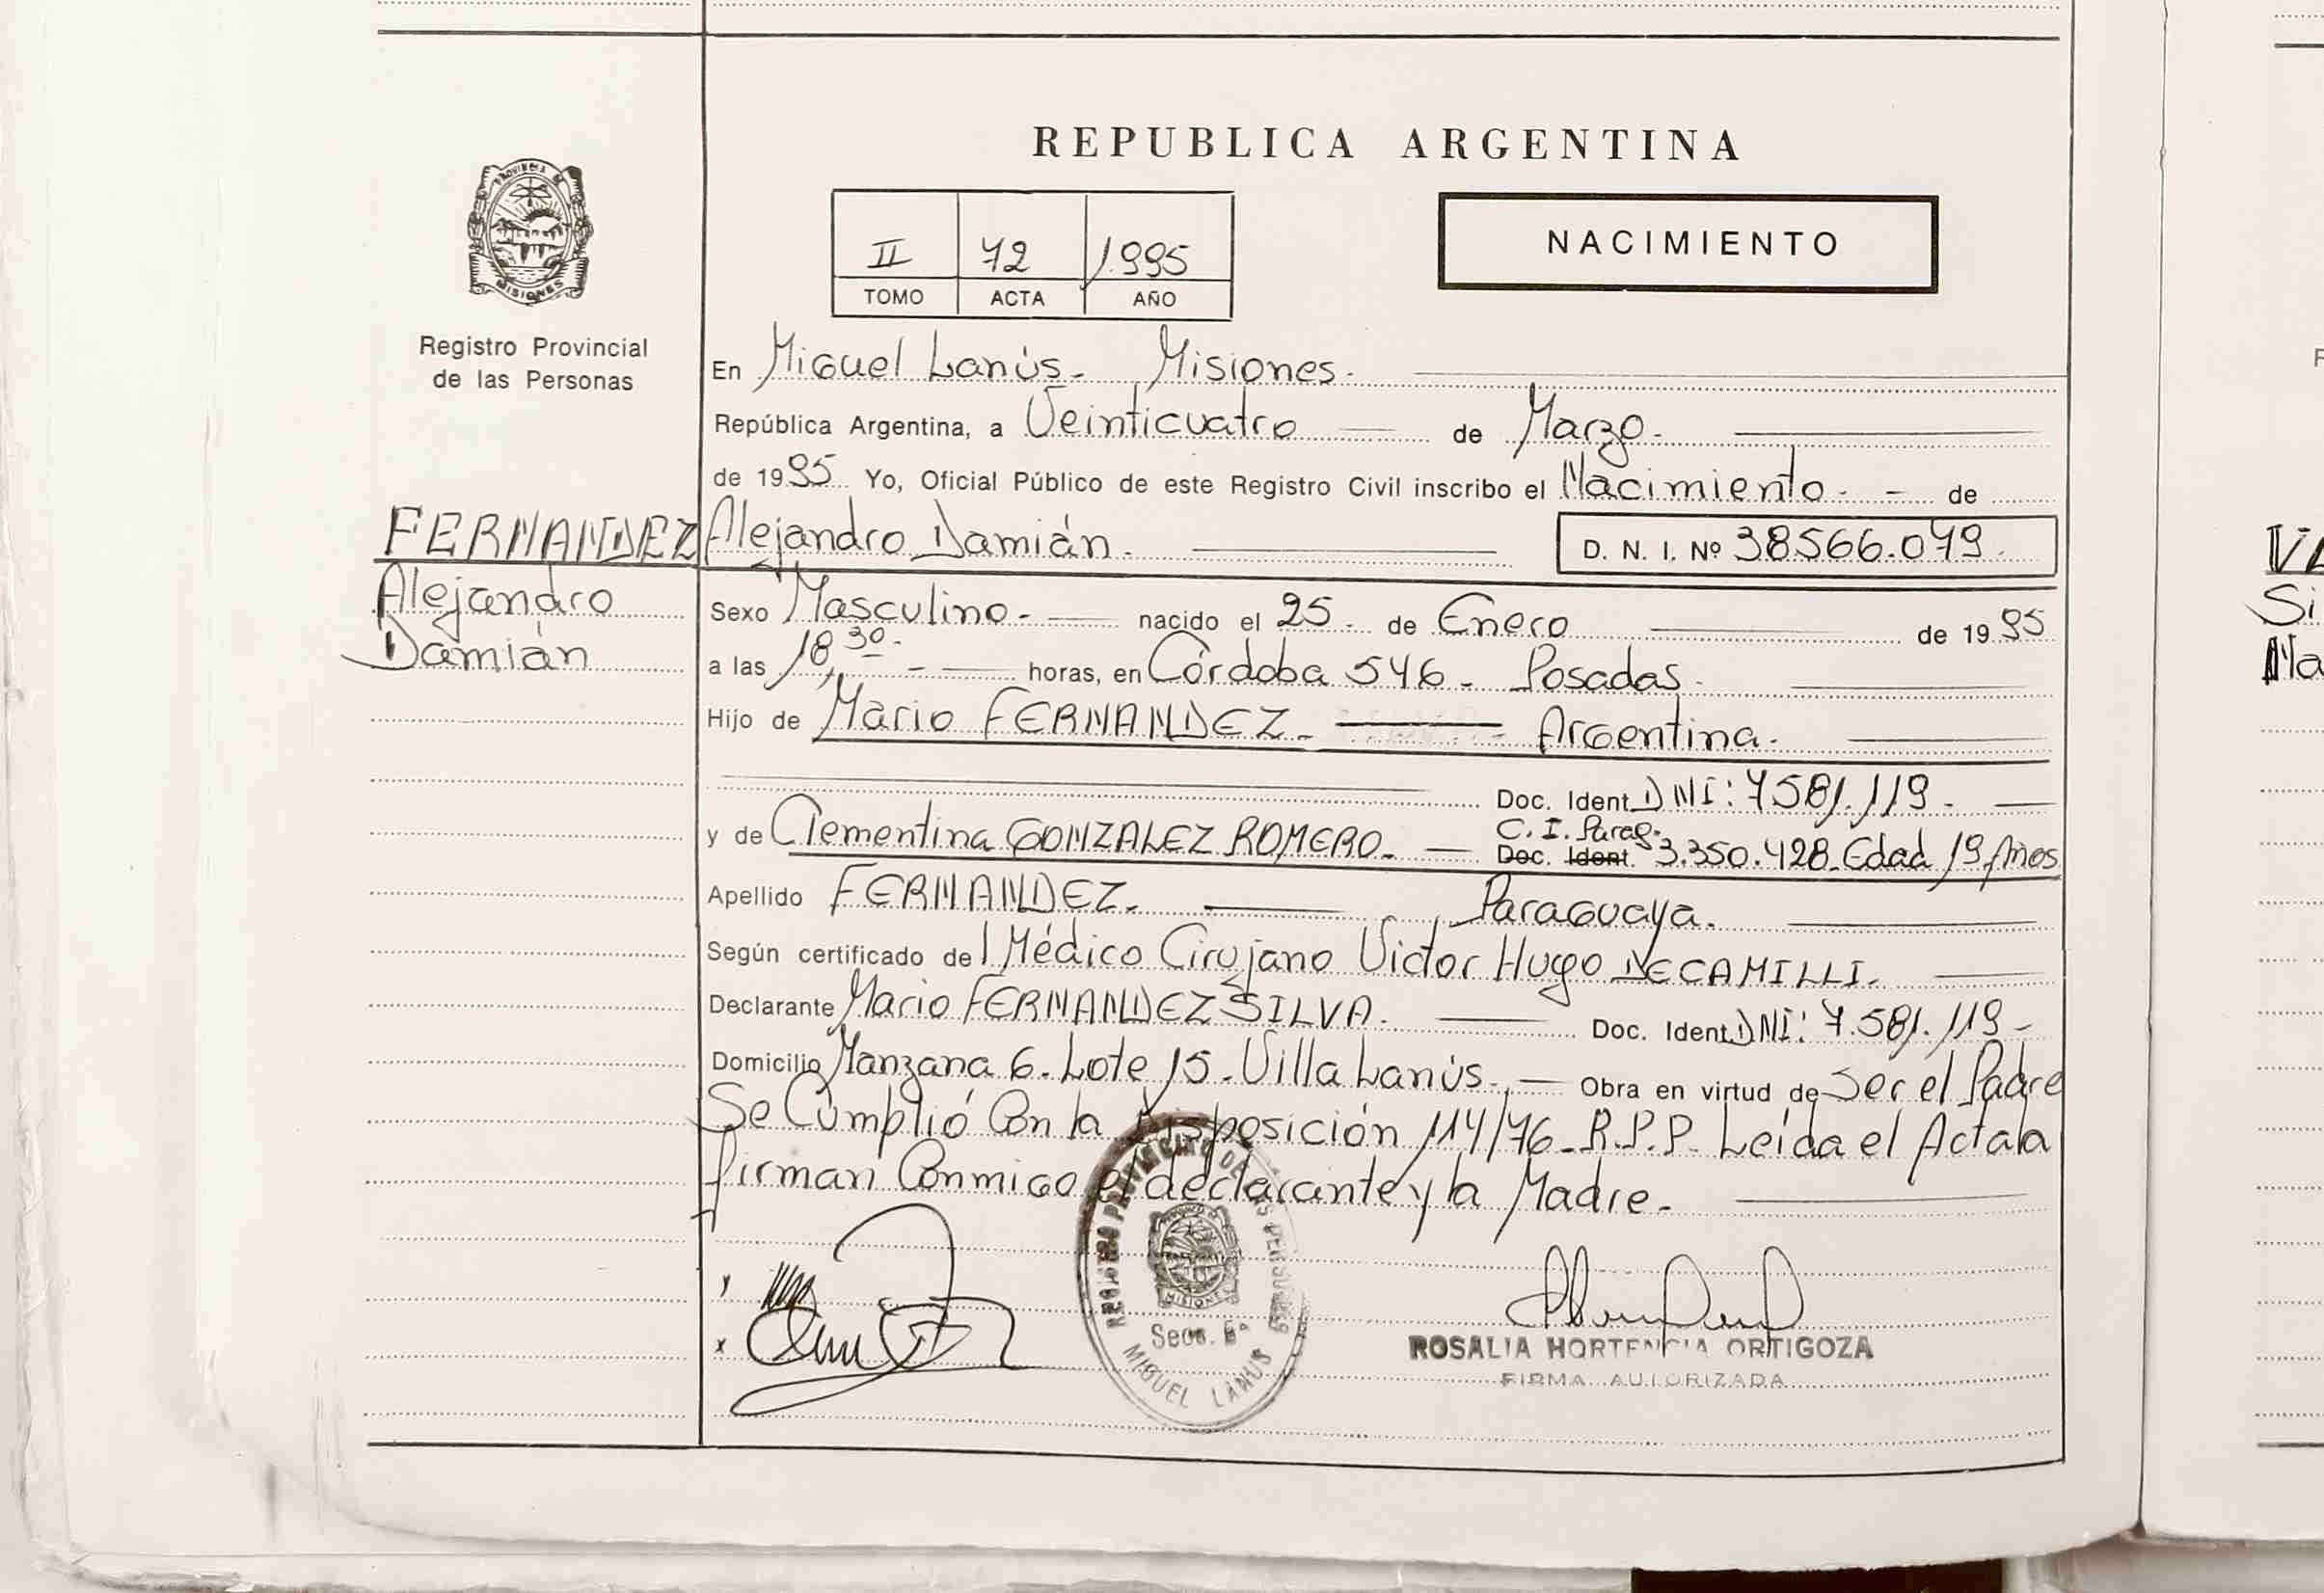 REPUBLICA ARGENTINA
PROVINCIA DE
MISIONES
II 72 1.995
TOMO ACTA AÑO
NACIMIENTO
Registro Provincial
de las Personas
En Miguel Lanús - Misiones.
República Argentina, a Veinticuatro de Marzo.
de 1995 Yo, Oficial Público de este Registro Civil inscribo el Nacimiento - - de
FERNANDEZ Alejandro Damián. D. N. I. Nº 38.566.079.
Alejandro
Damián
Sexo Masculino. nacido el 25 - de Enero de 1995
a las 18,30 - horas, en Córdoba 546 - Posadas.
Hijo de Mario FERNANDEZ. Argentina.
Doc. Ident. DNI: 7.581.119 -
y de Clementina GONZALEZ ROMERO. C. I. Parag. Doc. Ident. 3.350.428. Edad 19 Años
Apellido FERNANDEZ. Paraguaya.
Según certificado del Médico Cirujano Victor Hugo DECAMILLI.
Declarante Mario FERNANDEZ SILVA. Doc. Ident. DNI: 7.581.119 -
Domicilio Manzana 6 - Lote 15 - Villa Lanús - Obra en virtud de Ser el Padre
Se Cumplió Con la Disposición 114/76 - R.P.P. Leída el Acta la
firman Conmigo el declarante y la Madre.
REGISTRO PROVINCIAL DE LAS PERSONAS
MISIONES
Secc. 5ª
MIGUEL LANUS
ROSALIA HORTENCIA ORTIGOZA
FIRMA AUTORIZADA
Si
Ma